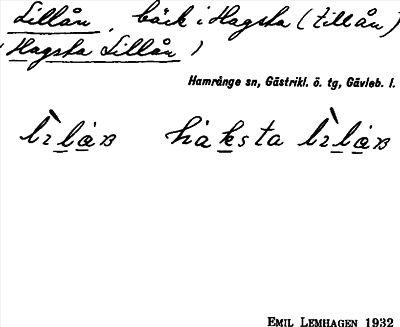 Lillån, bäck i Hagsta (till ån)
(Hagsta Lillån)
Hamrånge sn, Gästrikl. ö. tg, Gävleb. l.
EMIL LEMHAGEN 1932